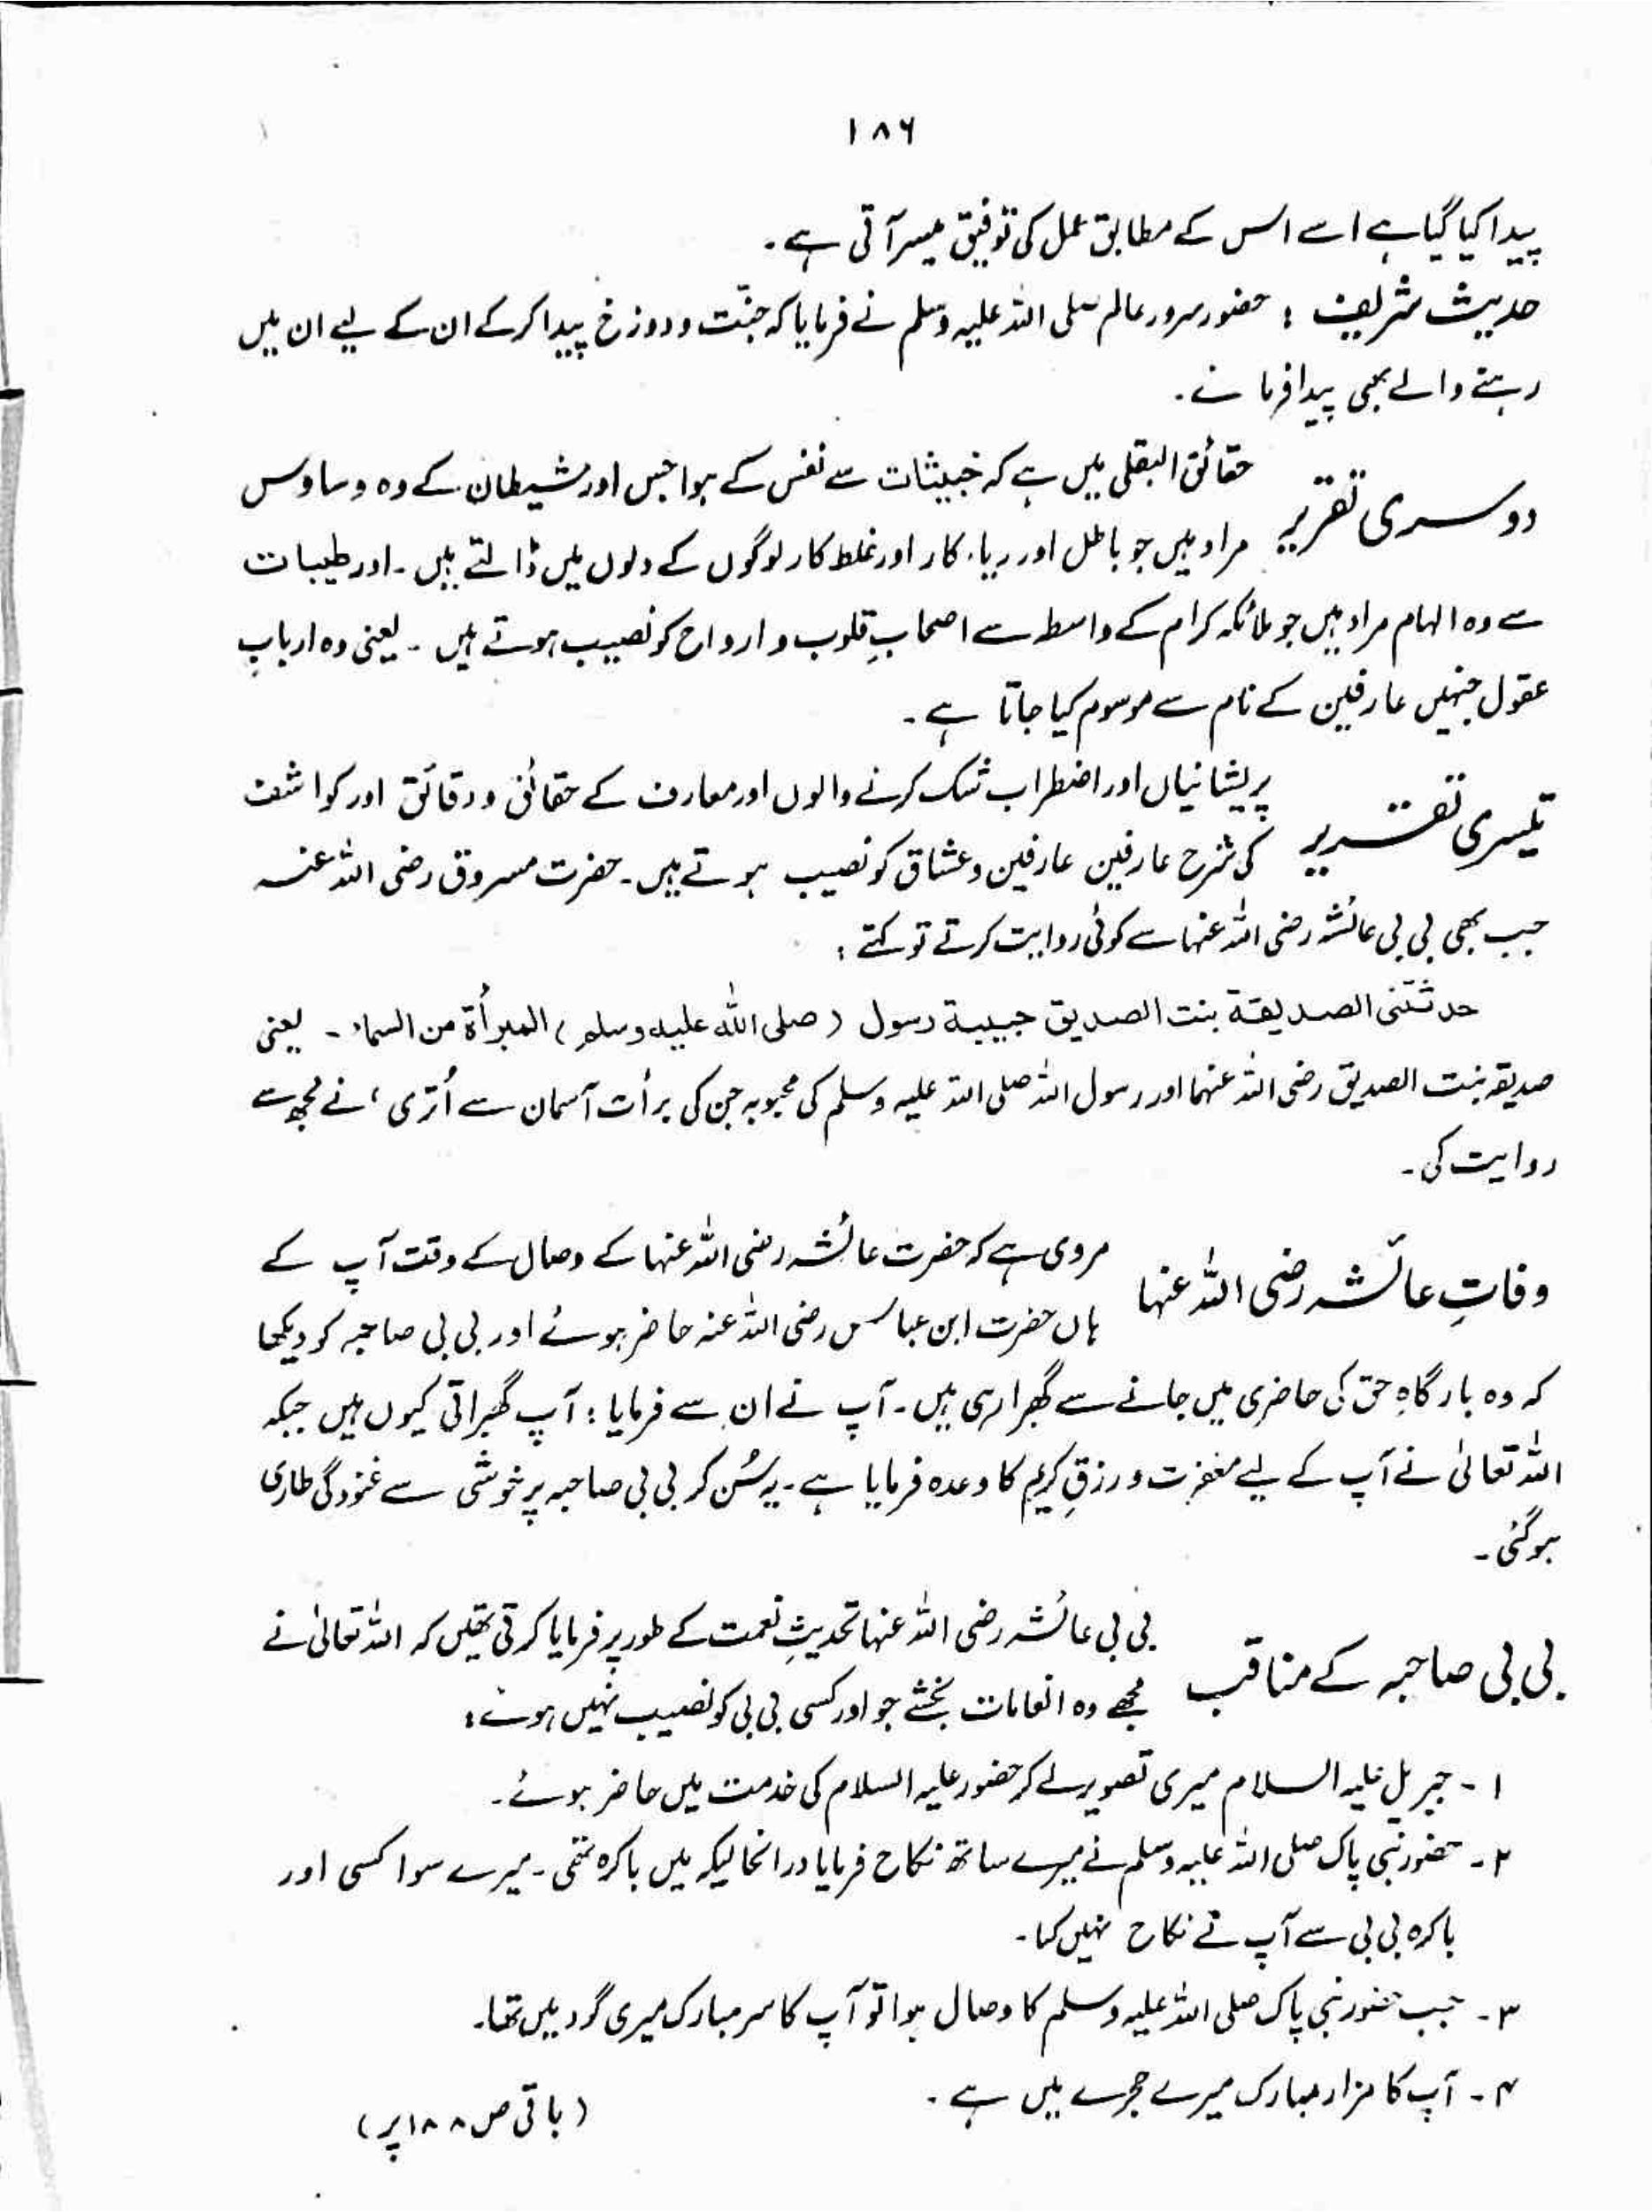 ۱۸۶
پیدا کیا گیا ہے اسے اس کے مطابق عمل کی توفیق میسر آتی ہے۔
حدیث شریف : حضور سرور عالم صلی اللہ علیہ وسلم نے فرمایا کہ جنّت و دوزخ پیدا کر کے ان کے لیے ان میں
رہنے والے بھی پیدا فرمائے۔
دوسری تقریر حقائق البقلی میں ہے کہ خبیثات سے نفس کے ہواجس اور شیطان کے وہ وساوس
مراد ہیں جو باطل اور ریاء کار اور غلط کار لوگوں کے دلوں میں ڈالتے ہیں۔ اور طیبات
سے وہ الہام مراد ہیں جو ملائکہ کرام کے واسطہ سے اصحابِ قلوب و ارواح کو نصیب ہوتے ہیں۔ یعنی وہ اربابِ
عقول جنہیں عارفین کے نام سے موسوم کیا جاتا ہے۔
تیسری تقریر پریشانیاں اور اضطراب شک کرنے والوں اور معارف کے حقائق و دقائق اور کواشف
کی شرح عارفین عارفین و عشاق کو نصیب ہوتے ہیں۔ حضرت مسروق رضی اللہ عنہ
جب بھی بی بی عائشہ رضی اللہ عنہا سے کوئی روایت کرتے تو کہتے :
حدثتنی الصدیقة بنت الصدیق حبیبة رسول (صلی اللہ علیہ وسلم) المبرأة من السماء۔ یعنی
صدیقہ بنت الصدیق رضی اللہ عنہما اور رسول اللہ صلی اللہ علیہ وسلم کی محبوبہ جن کی برأت آسمان سے اُتری، نے مجھ سے
روایت کی۔
وفاتِ عائشہ رضی اللہ عنہا مروی ہے کہ حضرت عائشہ رضی اللہ عنہا کے وصال کے وقت آپ کے
ہاں حضرت ابن عباس رضی اللہ عنہ حاضر ہوئے اور بی بی صاحبہ کو دیکھا
کہ وہ بارگاہِ حق کی حاضری میں جانے سے گھبرا رہی ہیں۔ آپ نے ان سے فرمایا : آپ گھبراتی کیوں ہیں جبکہ
اللہ تعالیٰ نے آپ کے لیے مغفرت و رزقِ کریم کا وعدہ فرمایا ہے۔ یہ سُن کر بی بی صاحبہ پر خوشی سے غنودگی طاری
ہو گئی۔
بی بی صاحبہ کے مناقب بی بی عائشہ رضی اللہ عنہا تحدیثِ نعمت کے طور پر فرمایا کرتی تھیں کہ اللہ تعالیٰ نے
مجھے وہ انعامات بخشے جو اور کسی بی بی کو نصیب نہیں ہوئے :
۱ - جبریل علیہ السلام میری تصویر لے کر حضور علیہ السلام کی خدمت میں حاضر ہوئے۔
۲ - حضور نبی پاک صلی اللہ علیہ وسلم نے میرے ساتھ نکاح فرمایا درانحالیکہ میں باکرہ تھی۔ میرے سوا کسی اور
باکرہ بی بی سے آپ نے نکاح نہیں کیا۔
۳ - جب حضور نبی پاک صلی اللہ علیہ وسلم کا وصال ہوا تو آپ کا سر مبارک میری گود میں تھا۔
۴ - آپ کا مزار مبارک میرے حجرے میں ہے۔
(باقی ص ۱۸۸ پر)